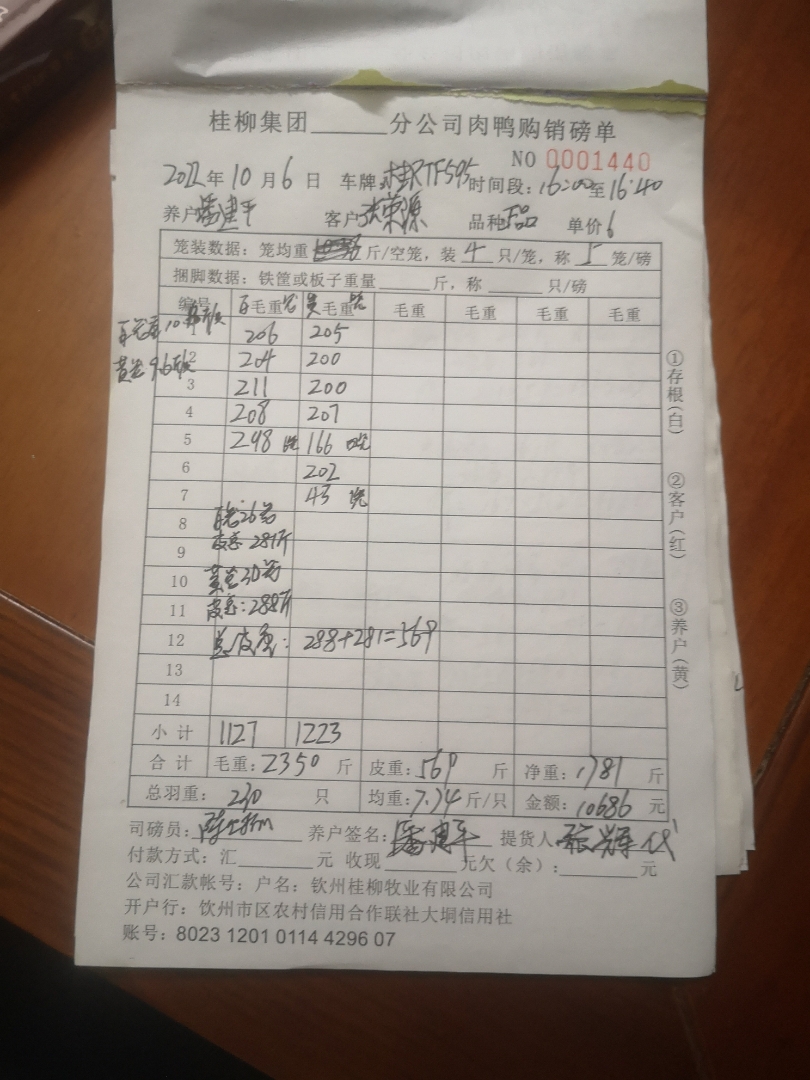 桂柳集团______分公司肉鸭购销磅单
NO 0001440
2022年10月6日 车牌:桂RTF595 时间段:16:00至16:40
养户 潘建平 客户 张荣源 品种 单价6
笼装数据:笼均重 斤/空笼,装4只/笼,称5笼/磅
捆脚数据:铁筐或板子重量______斤,称______只/磅
编号 白毛重 黄毛重 毛重 毛重 毛重 毛重
1 206 205
2 204 200
黄笼9.6
3 211 200
4 208 207
5 298 166
6 202
7 43
8 26
9 皮重281斤
10 黄笼30
11 皮重:288斤
12 总皮重:288+281=569
13
14
小计 1127 1223
合计 毛重:2350斤 皮重:569斤 净重:1781斤
总羽重:230只 均重:7.74斤/只 金额:10686元
司磅员: 养户签名:潘建平 提货人 代
付款方式:汇______元 收现______元欠(余):______元
公司汇款帐号:户名:钦州桂柳牧业有限公司
开户行:钦州市区农村信用合作联社大垌信用社
账号:8023 1201 0114 4296 07
①存根(白)
②客户(红)
③养户(黄)